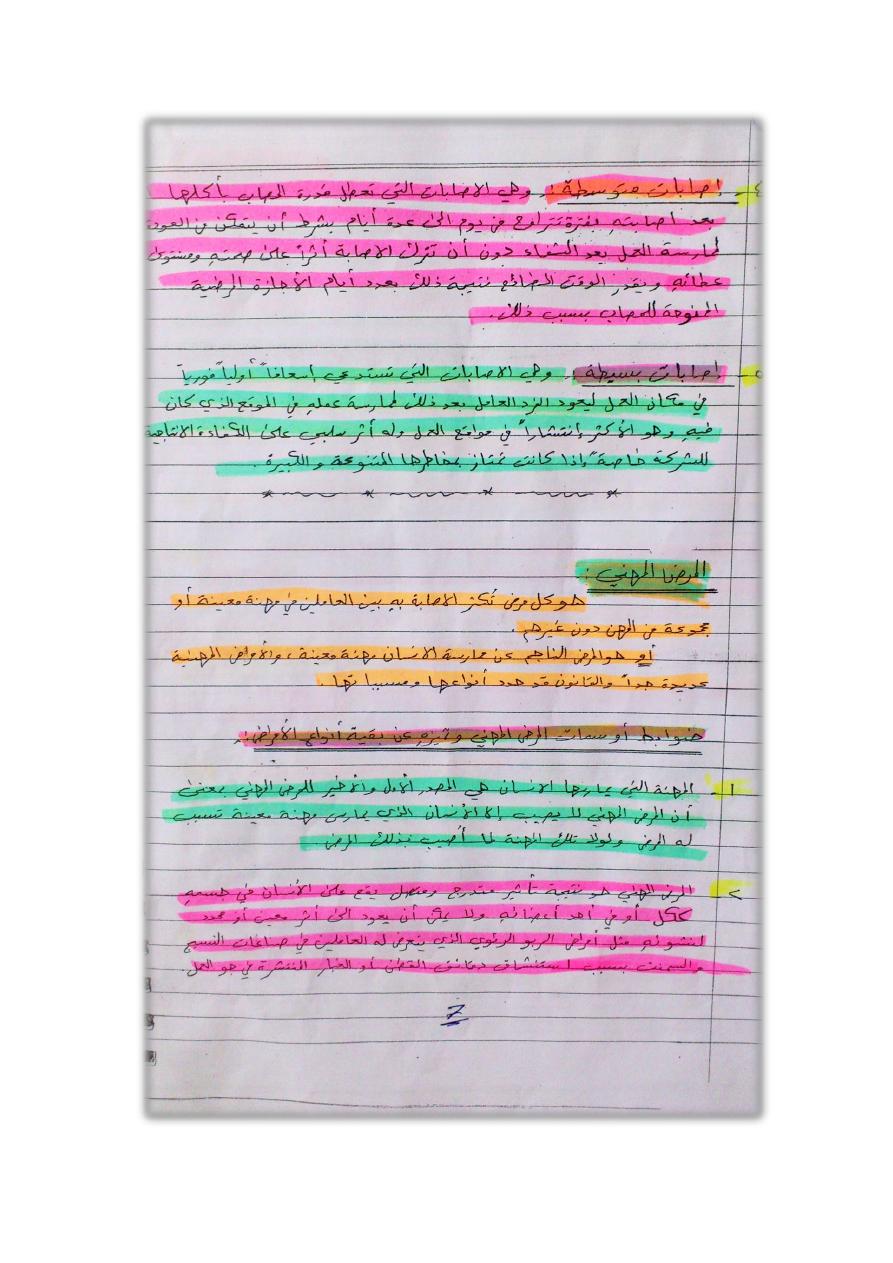 ٤- إصابات متوسطة : وهي الاصابات التي تعطل قدرة المصاب بأكملها
بعد اصابته لفترة تتراوح من يوم الى عدة أيام بشرط أن يتمكن من العودة
لممارسة العمل بعد الشفاء دون أن تترك الاصابة أثراً على صحته ومستوى
عطائه ويقدر الوقت الضائع نتيجة ذلك بعدد أيام الأجازة المرضية
الممنوحة للمصاب بسبب ذلك .
٥- إصابات بسيطة : وهي الاصابات التي تستدعي إسعافاً أولياً فورياً
في مكان العمل ليعود الفرد العامل بعد ذلك لممارسة عمله في الموقع الذي كان
فيه وهو الأكثر إنتشاراً في مواقع العمل وله أثر سلبي على الكفاءة الانتاجية
للشركة خاصة إذا كانت تمتاز بمخاطرها المتنوعة والكبيرة .
المرض المهني :
هو كل مرض تكثر الاصابة به بين العاملين في مهنة معينة أو
مجموعة من المهن دون غيرهم .
أو هو المرض الناجم عن ممارسة الانسان مهنة معينة ، والأمراض المهنية
عديدة جداً والقانون قد حدد أنواعها ومسبباتها .
ضوابط أو سمات المرض المهني وتميزه عن بقية أنواع الأمراض :
١- المهنة التي يمارسها الانسان هي المصدر الأول والأخير للمرض المهني بمعنى
أن المرض المهني لا يصيب إلا الأنسان الذي يمارس مهنة معينة تسبب
له المرض ولولا تلك المهنة لما أصيب بذلك المرض .
٢- المرض المهني هو نتيجة تأثير متدرج ومتصل يقع على الأنسان في جسمه
ككل أو في أحد أعضائه ولا يمكن أن يعود الى أثر معين أو محدد
لنشوئه مثل أمراض الربو الرئوي الذي يتعرض له العاملين في صناعات النسيج
والسمنت بسبب استنشاق دقائق القطن أو الغبار المنتشرة في جو العمل .
7